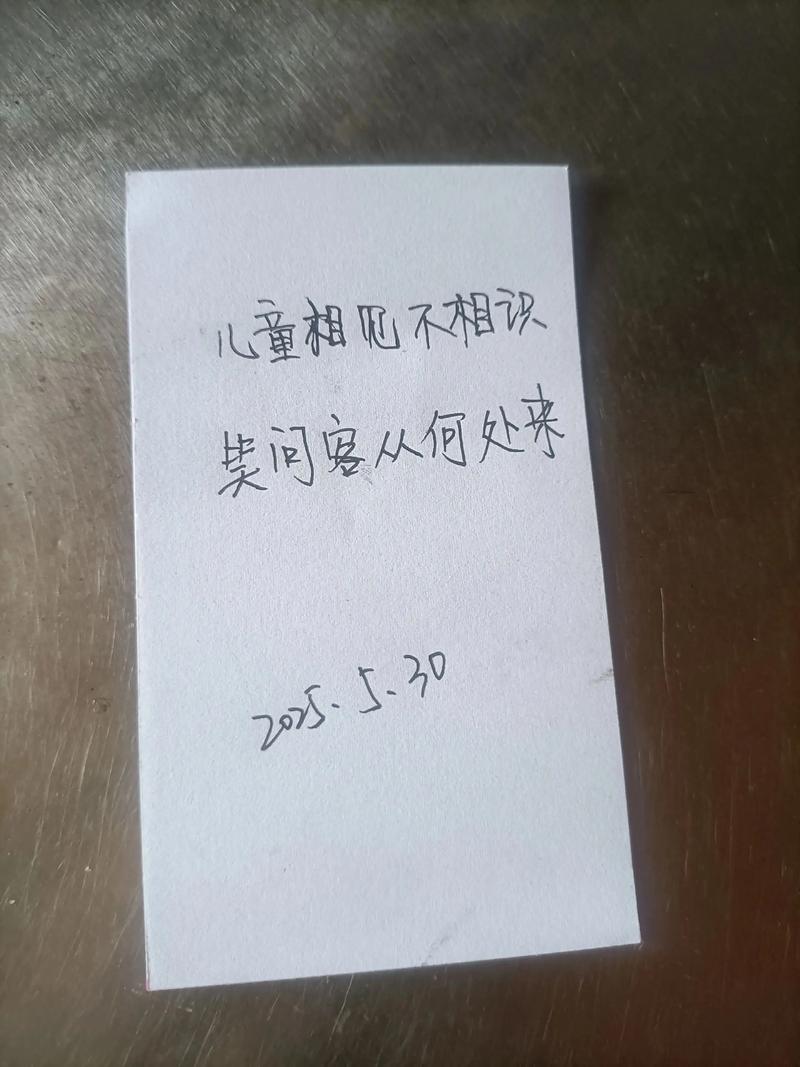 儿童相见不相识
笑问客从何处来
2025.5.30